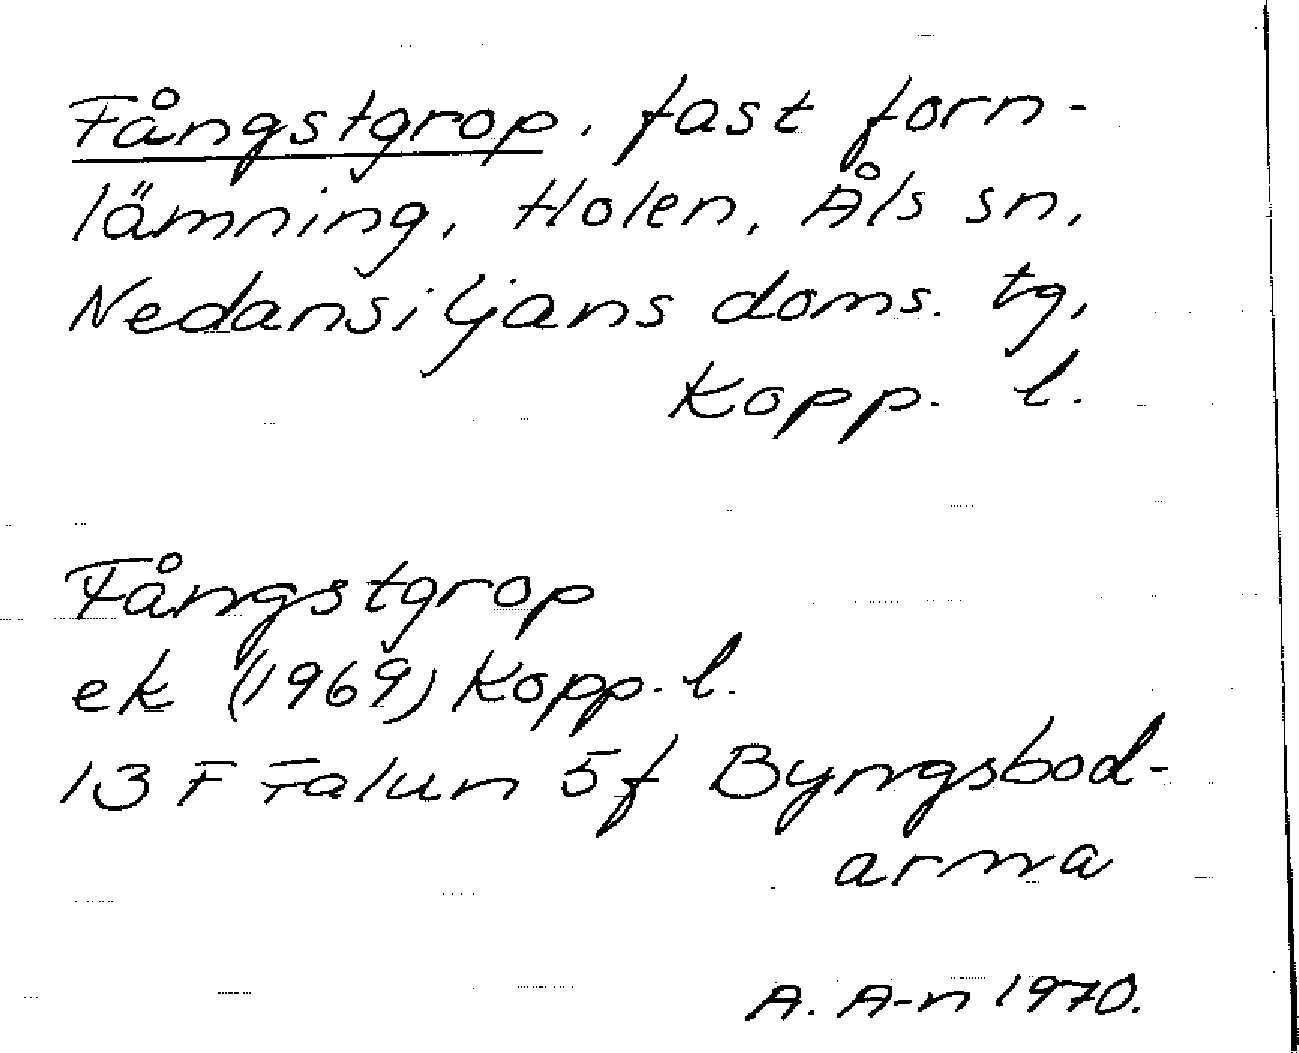 Fångstgrop, fast forn-
lämning, Holen, Åls sn,
Nedansiljans doms. tg,
Kopp. l.
Fångstgrop
ek (1969) Kopp. l.
13 F Falun 5f Byngsbod-
arna
A. A-n 1970.